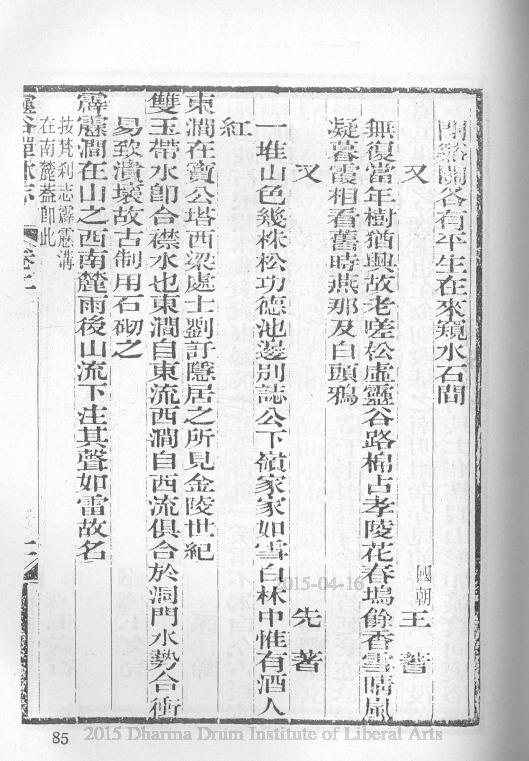 閒谿澗各有平生在來窺水石間
又　國朝王著
無復當年樹猶興故老嗟松虛靈谷路棉占孝陵花春塢餘香雪晴嵐
凝暮霞相看舊時燕那及白頭鴉
又　先著
一堆山色幾株松功德池邊別誌公下嶺家家如雪白林中惟有酒人
紅
東澗在寶公塔西梁處士劉訏隱居之所見金陵世紀
雙玉帶水卽合襟水也東澗自東流西澗自西流俱合於洞門水勢合衝
易致潰壞故古制用石砌之
霹靂澗在山之西南麓雨後山流下注其聲如雷故名
按梵刹志霹靂溝
在南麓葢卽此
靈谷禪林志
卷二
015-04-16
85
2015 Dharma Drum Institute of Liberal Arts